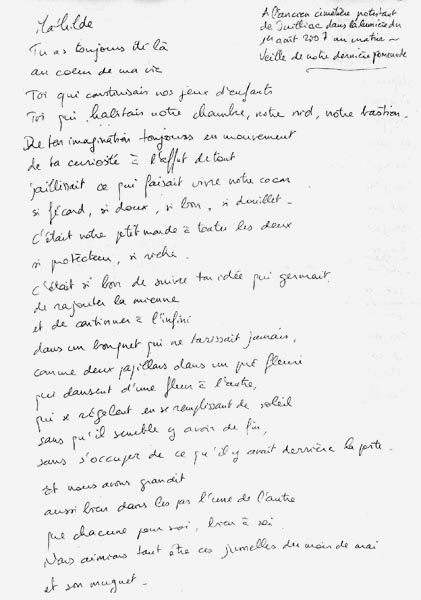 Mathilde
A l'ancien cimetière protestant
de Juillac dans la lumière du
1er août 2007 au matin ~
Veille de notre dernière promenade
Tu as toujours été là
au coeur de ma vie
Toi qui construisais nos jeux d'enfants
Toi qui habitais notre chambre, notre nid, notre bastion.
De ton imagination toujours en mouvement
de ta curiosité à l'affut de tout
jaillissait ce qui faisait vivre notre cocon
si fécond, si doux, si bon, si douillet -
C'était notre petit monde à toutes les deux
si protecteur, si riche.
C'était si bon de suivre ton idée qui germait,
de rajouter la mienne
et de continuer à l'infini
dans un bouquet qui ne tarissait jamais,
comme deux papillons dans un pré fleuri
qui dansent d'une fleur à l'autre,
qui se régalent en se remplissant de soleil
sans qu'il semble y avoir de fin,
sans s'occuper de ce qu'il y avait derrière la porte.
Et nous avons grandit
aussi bien dans les pas l'une de l'autre
que chacune pour soi, bien à soi.
Nous aimions tant être ces jumelles du mois de mai
et son muguet -